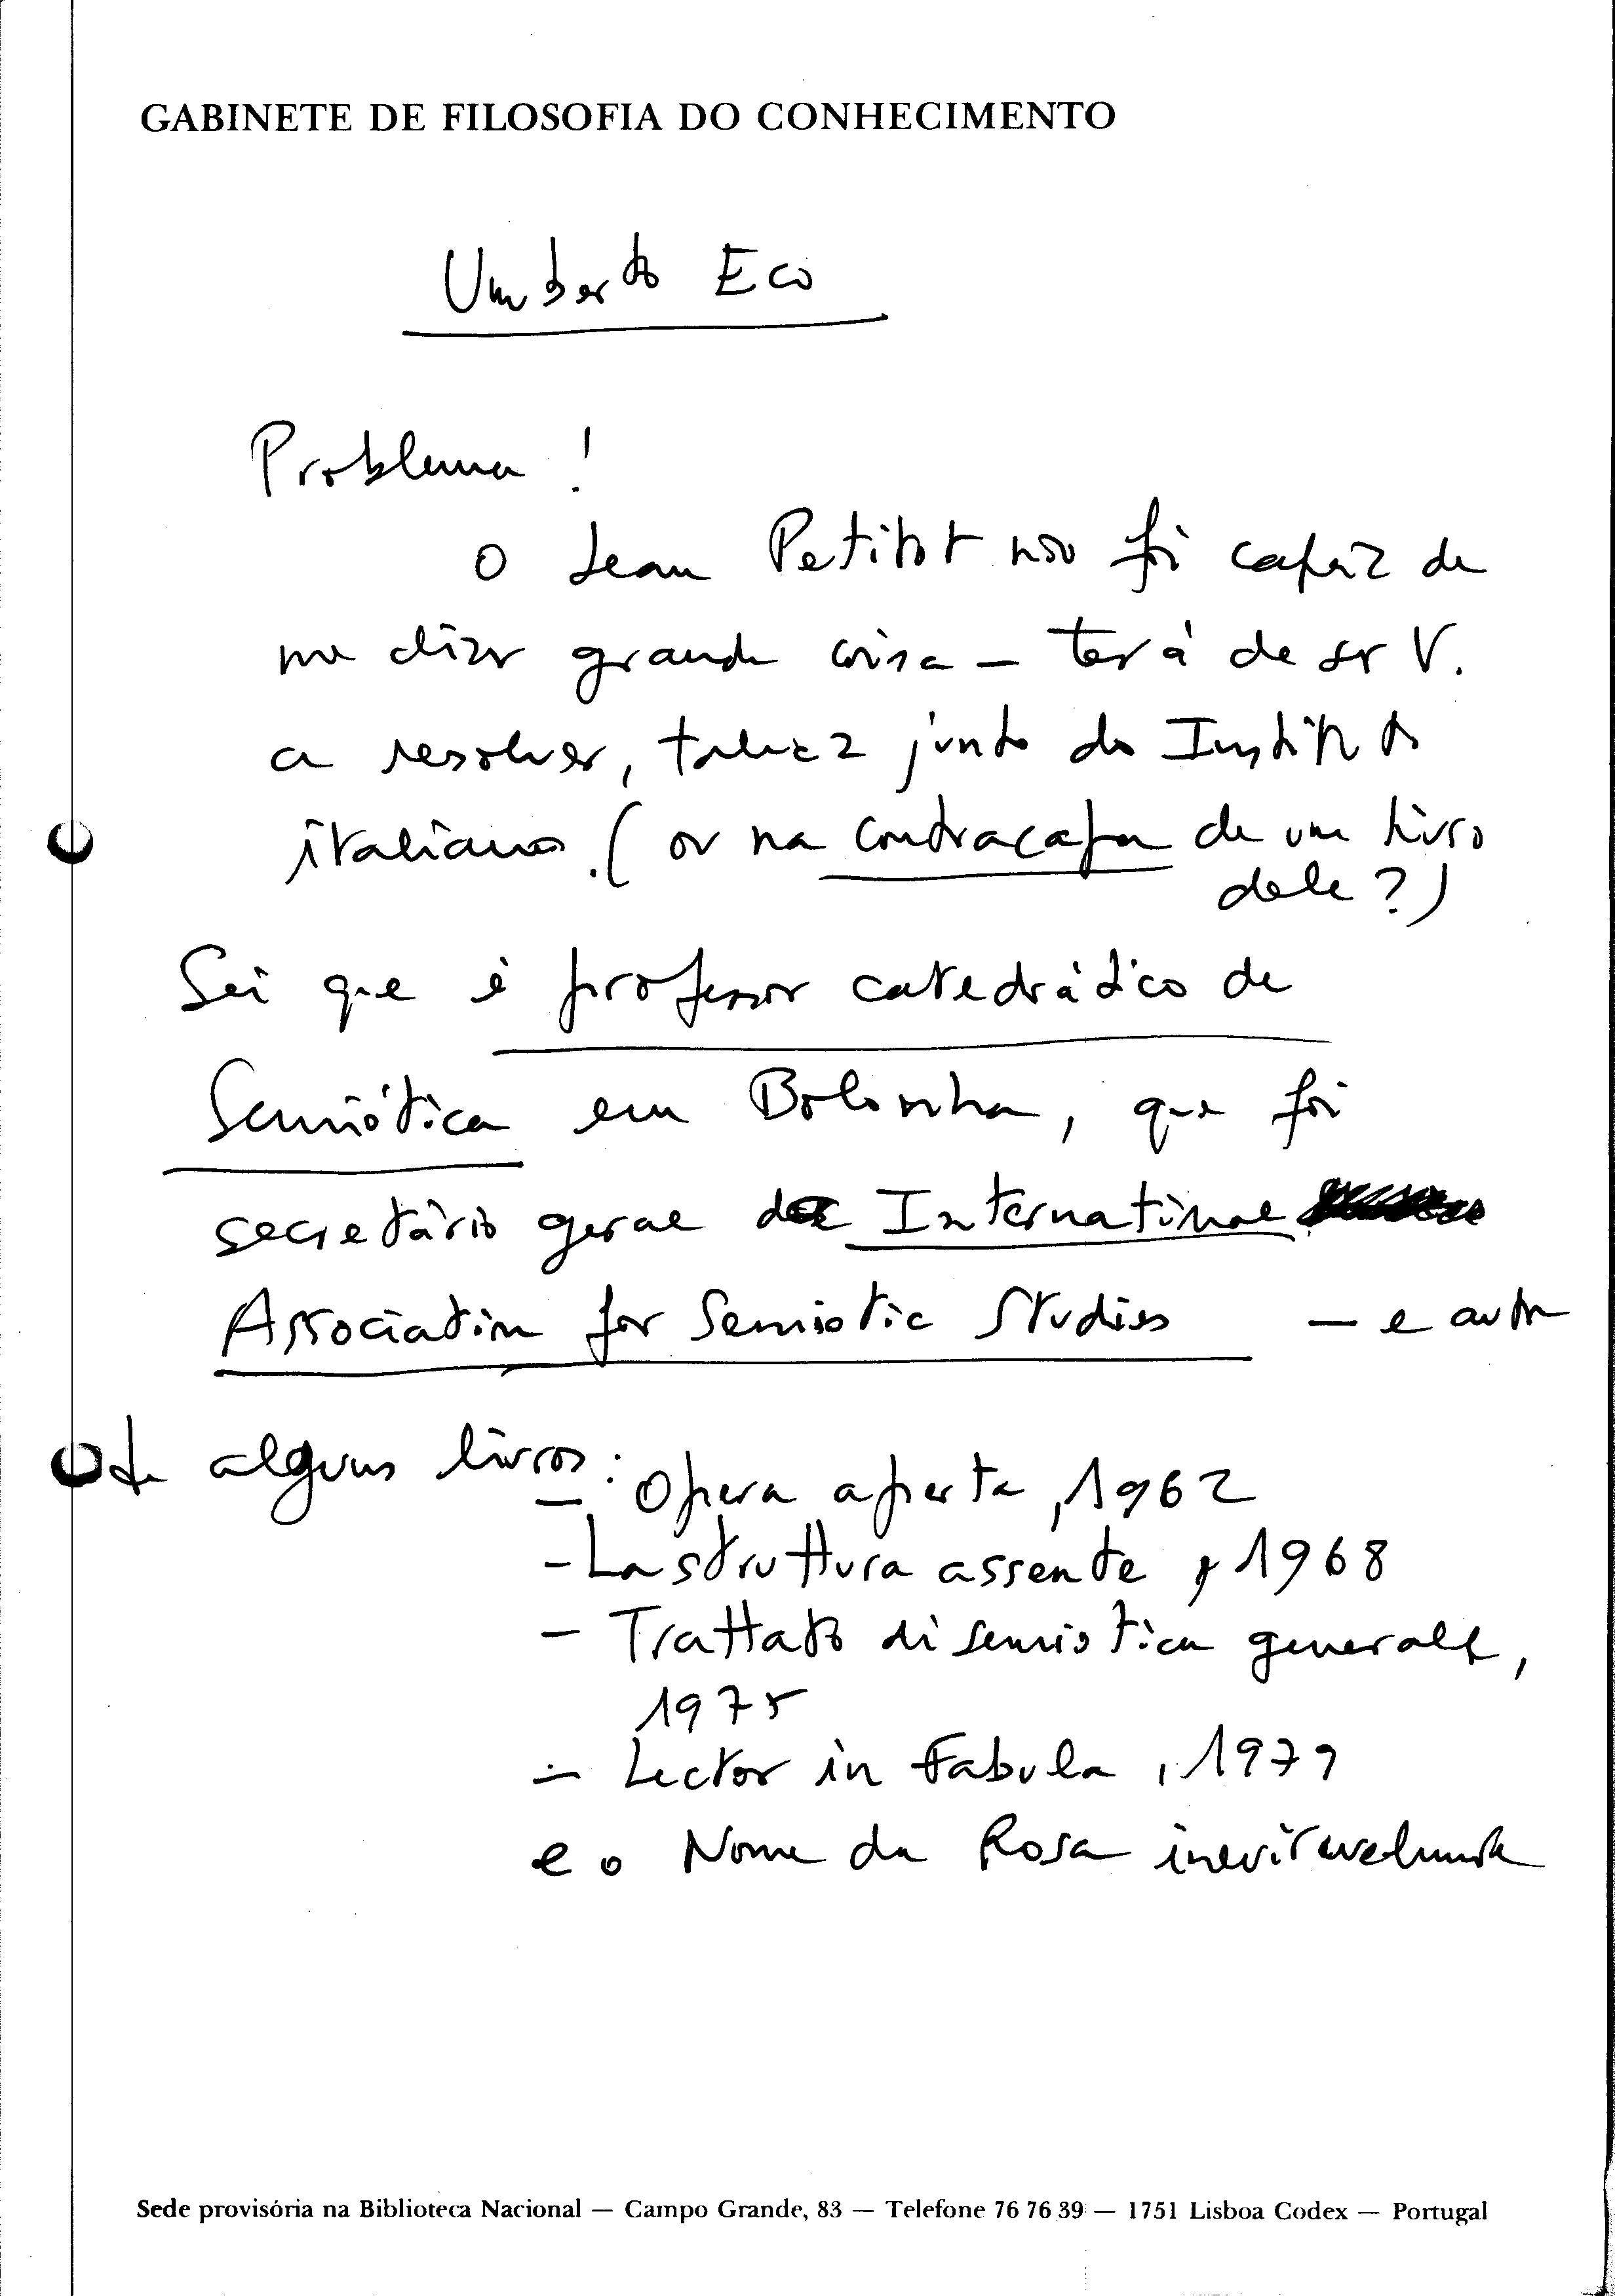 GABINETE DE FILOSOFIA DO CONHECIMENTO
Umberto Eco
Problema !
O Jean Petitot não foi capaz de
me dizer grande coisa — terá de ser V.
a resolver, talvez junto do Instituto
italiano. ( ou na contracapa de um livro
dele ? )
Sei que é professor catedrático de
Semiótica em Bolonha, que foi
secretário geral da International
Association for Semiotic Studies — e autor
de alguns livros :
— Opera aperta, 1962
- La struttura assente, 1968
- Trattato di semiotica generale,
1975
- Lector in Fabula, 1979
e o Nome da Rosa inevitavelmente
Sede provisória na Biblioteca Nacional — Campo Grande, 83 — Telefone 76 76 39 — 1751 Lisboa Codex — Portugal